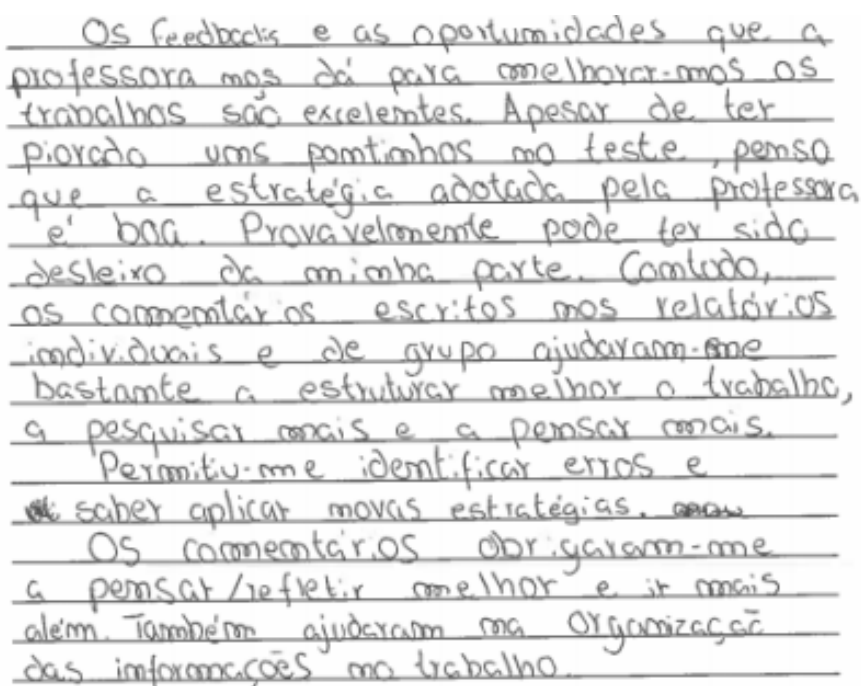 Os feedbacks e as oportunidades que a
professora nos dá para melhorar-mos os
trabalhos são excelentes. Apesar de ter
piorado uns pontinhos no teste, penso
que a estratégia adotada pela professora
é boa. Provavelmente pode ter sido
desleixo da minha parte. Contudo,
os comentários escritos nos relatórios
individuais e de grupo ajudaram-me
bastante a estruturar melhor o trabalho,
a pesquisar mais e a pensar mais.
Permitiu-me identificar erros e
saber aplicar novas estratégias.
Os comentários obrigaram-me
a pensar/refletir melhor e ir mais
além. Também ajudaram na organização
das informações no trabalho.